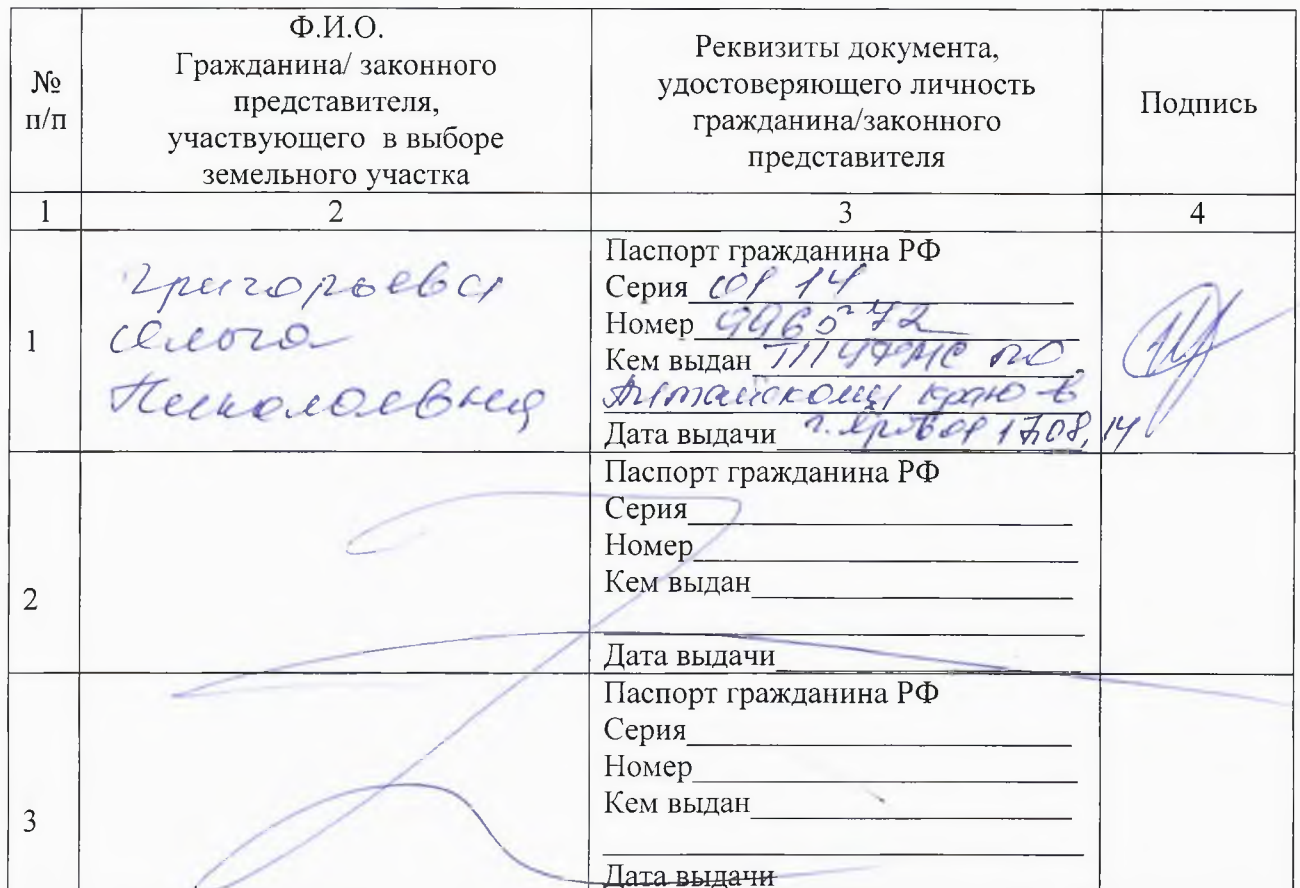 №
п/п
Ф.И.О.
Гражданина/ законного
представителя,
участвующего в выборе
земельного участка
Реквизиты документа,
удостоверяющего личность
гражданина/законного
представителя
Подпись
1
2
3
4
1
Григорьева
Николаевна
Паспорт гражданина РФ
Серия 01 14
Номер
Кем выдан ТП УФМС по
Алтайскому краю в
Дата выдачи г. Яровое 17.08.14
2
Паспорт гражданина РФ
Серия
Номер
Кем выдан
Дата выдачи
3
Паспорт гражданина РФ
Серия
Номер
Кем выдан
Дата выдачи